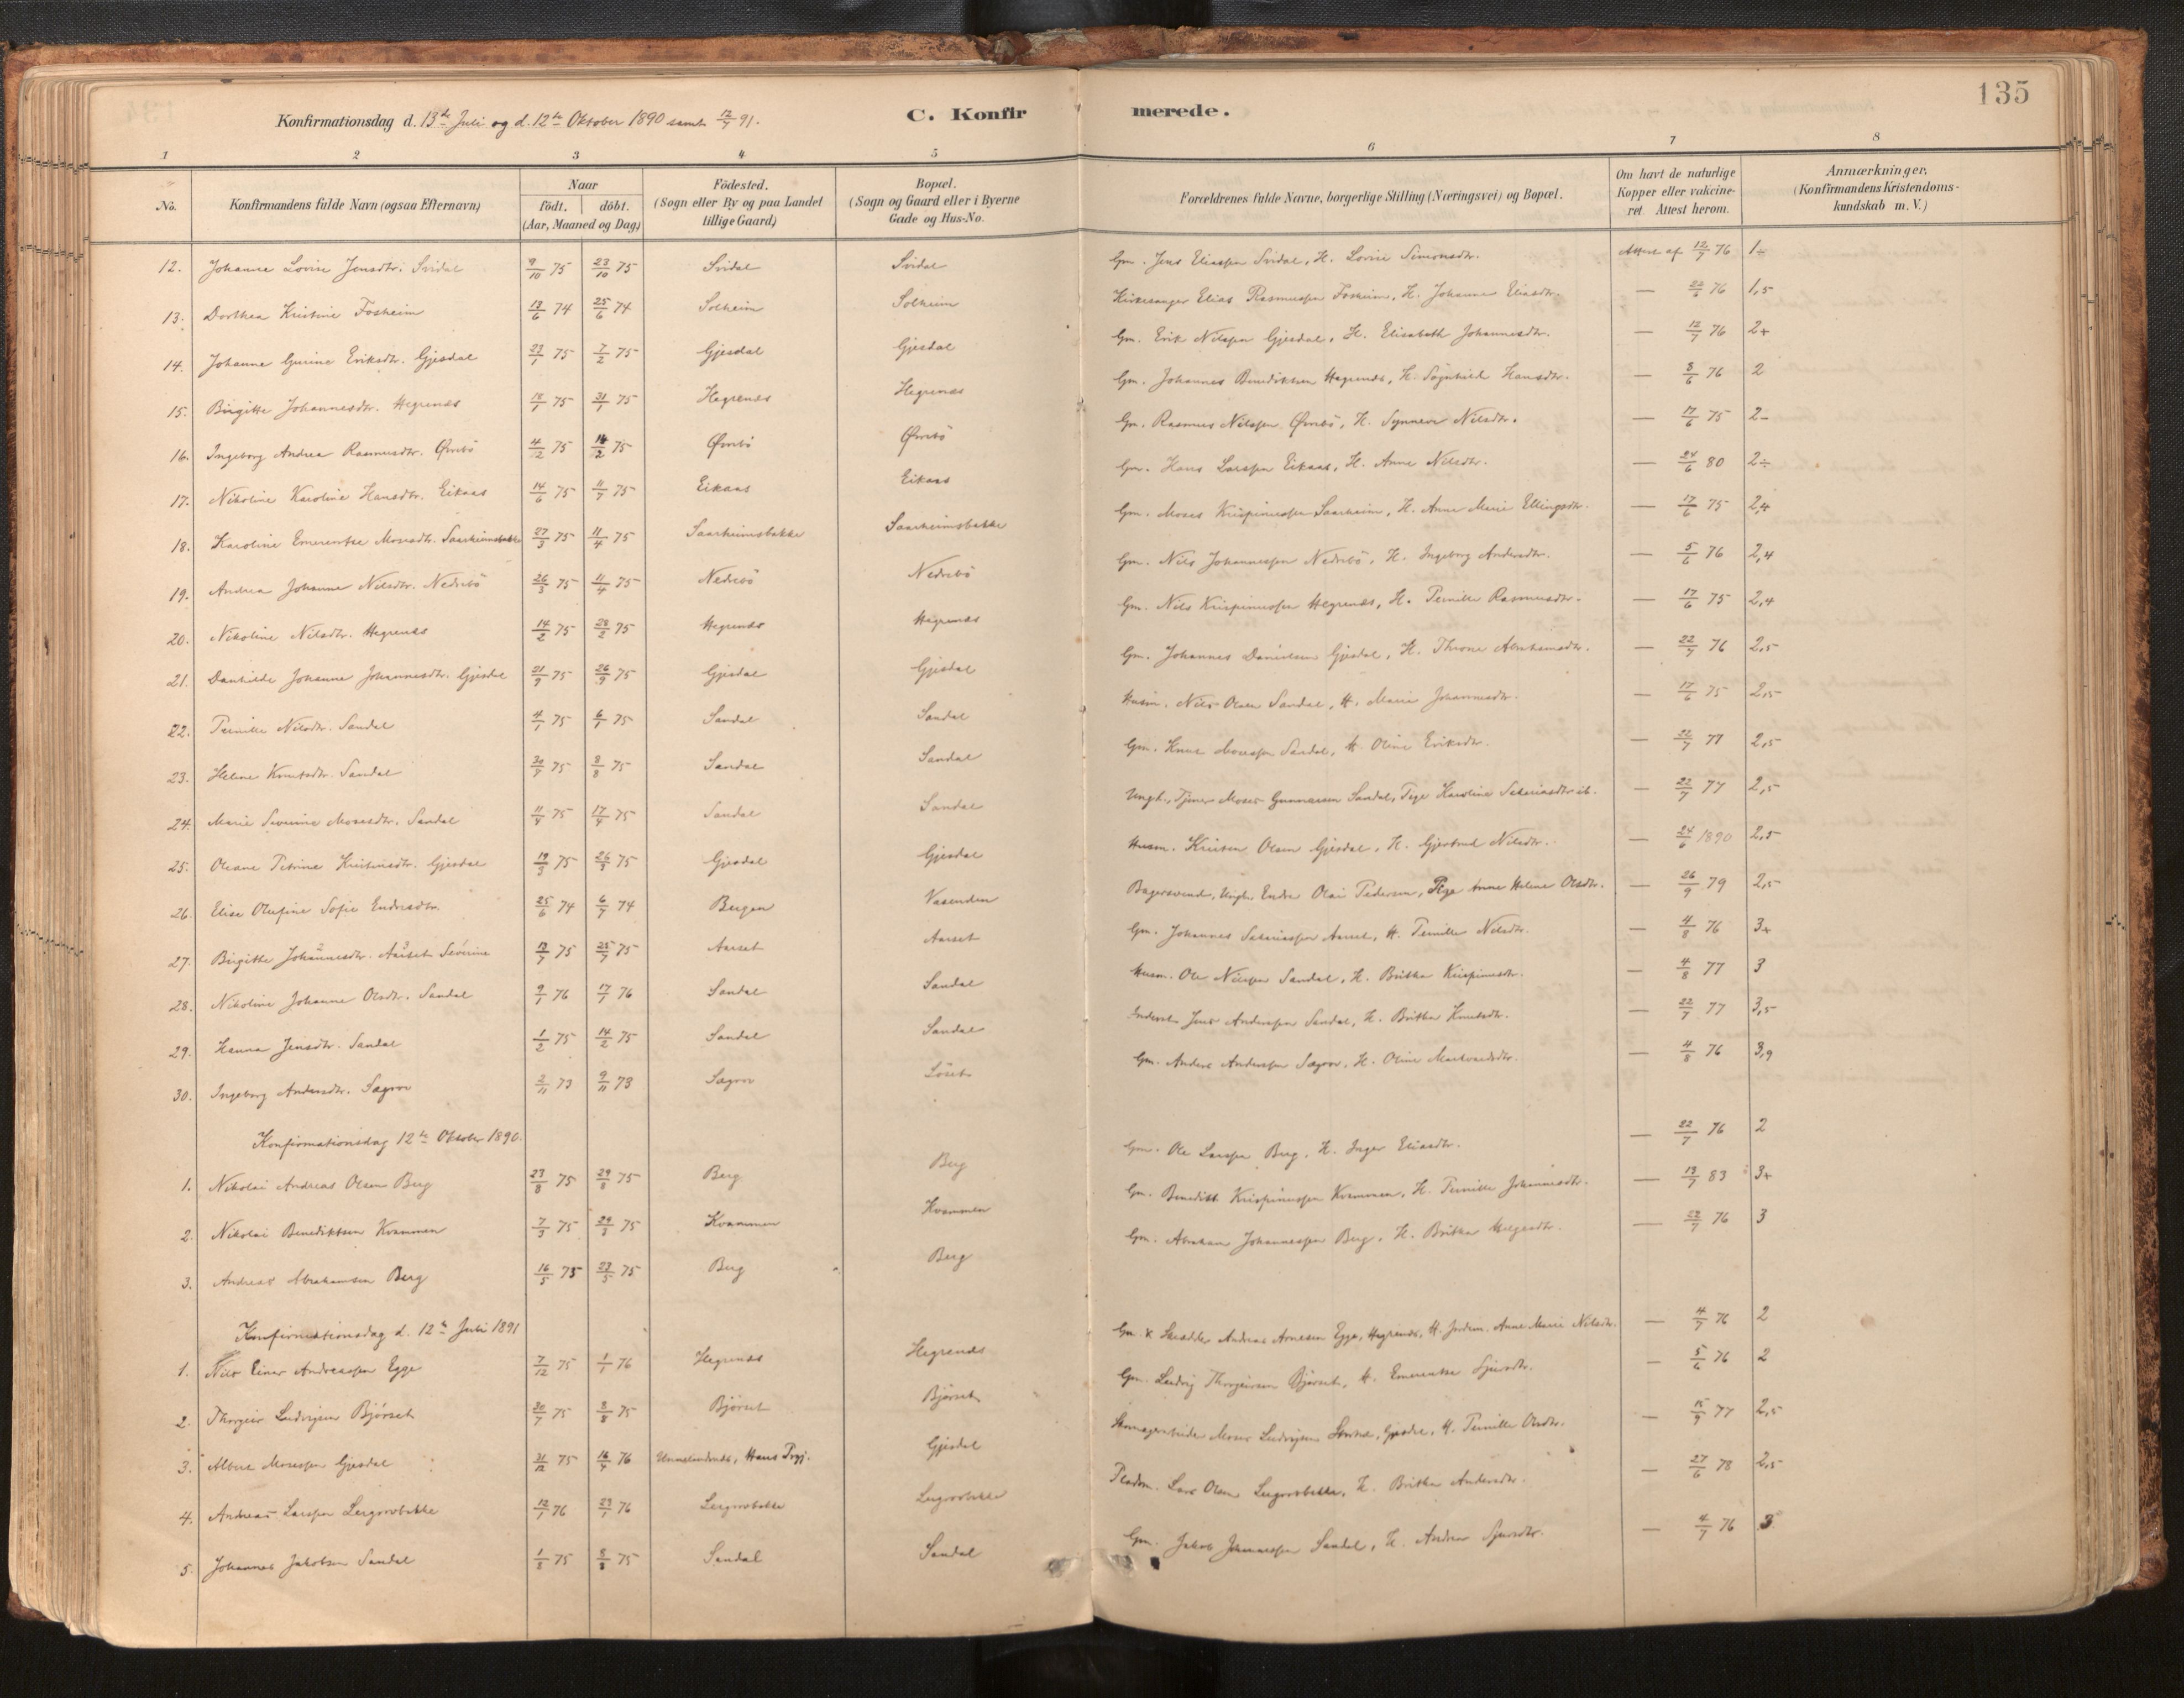 135
Konfirmationsdag d. 13de Juli og d. 12te Oktober 1890 samt 12/7 91.
C. Konfirmerede.
1 2 3 4 5 6 7 8
No. Konfirmandens fulde Navn (ogsaa Efternavn) Naar födt. döbt. (Aar, Maaned og Dag) Födested. (Sogn eller By og paa Landet tillige Gaard) Bopæl. (Sogn og Gaard eller i Byerne Gade og Hus-No. Forældrenes fulde Navne, borgerlige Stilling (Næringsvei) og Bopæl. Om havt de naturlige Kopper eller vakcineret. Attest herom. Anmærkninger. (Konfirmandens Kristendomskundskab m. V.)
12. Johanne Lovise Jensdtr. Svidal 9/10 75 23/10 75 Svidal Svidal Gm. Jens Eliassen Svidal, H. Lovise Simonsdtr. Attest af 12/7 76 1÷
13. Dorthea Kristine Fosheim 13/6 74 25/6 74 Solheim Solheim Kirkesanger Elias Rasmussen Fosheim, H. Johanne Eliasdtr. — 22/6 76 1,5
14. Johanne Gurine Eriksdtr. Gjesdal 23/1 75 7/2 75 Gjesdal Gjesdal Gm. Erik Nilssen Gjesdal, H. Elisabeth Johannesdtr. — 12/7 76 2+
15. Birgitte Johannesdtr. Hegrenæs 18/1 75 31/1 75 Hegrenæs Hegrenæs Gm. Johannes Benediktsen Hegrenæs, H. Søgnhild Hansdtr. — 8/6 76 2
16. Ingeborg Andrea Rasmusdtr. Øvrebö 4/12 75 14/12 75 Øvrebö Øvrebö Gm. Rasmus Nilssen Øvrebö, H. Synneva Nilsdtr. — 17/6 75 2-
17. Nikoline Karoline Hansdtr. Eikaas 14/6 75 11/7 75 Eikaas Eikaas Gm. Hans Larssen Eikaas, H. Anne Nilsdtr. — 24/6 80 2÷
18. Karoline Emerentse Mosesdtr. Saarheimsbakke 27/3 75 11/4 75 Saarheimsbakke Saarheimsbakke Gm. Moses Krispinussen Saarheim, H. Anne Marie Ellingsdtr. — 17/6 75 2,4
19. Andrea Johanne Nilsdtr. Nedrebö 26/3 75 11/4 75 Nedrebö Nedrebö Gm. Nils Johannessen Nedrebö, H. Ingeborg Andersdtr. — 5/6 76 2,4
20. Nikoline Nilsdtr. Hegrenæs 14/2 75 28/2 75 Hegrenæs Hegrenæs Gm. Nils Krispinussen Hegrenæs, H. Pernille Rasmusdtr. — 17/6 75 2,4
21. Danhilde Johanne Johannesdtr. Gjesdal 21/9 75 26/9 75 Gjesdal Gjesdal Gm. Johannes Danielsen Gjesdal, H. Throne Abrahamsdtr. — 22/7 76 2,5
22. Pernille Nilsdtr. Sandal 4/1 75 6/1 75 Sandal Sandal Husm. Nils Olsen Sandal, H. Marie Johannesdtr. — 17/6 75 2,5
23. Helene Knutsdtr. Sandal 30/7 75 8/8 75 Sandal Sandal Gm. Knut Mosessen Sandal, H. Oline Eriksdtr. — 22/7 77 2,5
24. Marie Severine Mosesdtr. Sandal 11/4 75 17/4 75 Sandal Sandal Ungk., Tjener Moses Gunnarsen Sandal, Pige Karoline Sakariasdtr. ib. — 22/7 77 2,5
25. Oleane Petrine Kristensdtr. Gjesdal 19/3 75 26/3 75 Gjesdal Gjesdal Husm. Kristen Olsen Gjesdal, H. Gjertrud Nilsdtr. — 24/6 1890 2,5
26. Elise Olufine Sofie Endresdtr. 25/6 74 6/7 74 Bergen Vasenden Bagersvend, Ungk. Endre Olai Pedersen, Pige Anne Helene Olsdtr. — 26/9 79 2,5
27. Birgitte Johannesdtr. Aarset Severine 13/7 75 25/7 75 Aarset Aarset Gm. Johannes Sakariassen Aarset, H. Pernille Nilsdtr. — 4/8 76 3+
28. Nikoline Johanne Olsdtr. Sandal 9/1 76 17/1 76 Sandal Sandal Husm. Ole Nilssen Sandal, H. Brithe Krispinusdtr. — 4/8 77 3
29. Hanna Jensdtr. Sandal 1/2 75 14/2 75 Sandal Sandal Inderst Jens Anderssen Sandal, H. Brithe Knutsdtr. — 22/7 77 3,5
30. Ingeborg Andersdtr. Sægrov 2/11 73 9/11 73 Sægrov Löset Gm. Anders Anderssen Sægrov, H. Oline Markvardsdtr. — 4/8 76 3,9
Konfirmationsdag 12te Oktober 1890.
1. Nikolai Andreas Olsen Berg 23/8 75 29/8 75 Berg Berg Gm. Ole Larssen Berg, H. Inger Eliasdtr. — 22/7 76 2
2. Nikolai Benediktsen Kvammen 7/3 75 29/3 75 Kvammen Kvammen Gm. Benedikt Krispinussen Kvammen, H. Pernille Johannesdtr. — 13/7 83 3+
3. Andreas Abrahamsen Berg 16/5 75 23/5 75 Berg Berg Gm. Abraham Johannessen Berg, H. Brithe Helgesdtr. — 22/7 76 3
Konfirmationsdag d. 12te Juli 1891
1. Nils Einar Andreassen Egge 7/12 75 1/1 76 Hegrenæs Hegrenæs Gm. & Andreas Arnesen Egge, Hegrenæs, H. Jordem. Anne Marie Nilsdtr. — 4/7 76 2
2. Thorgeir Ludvigsen Bjørset 30/7 75 8/8 75 Bjørset Bjørset Gm. Ludvig Thorgeirsen Bjørset, H. Emerentse Sjursdtr. — 5/6 76 2
3. Albert Mosessen Gjesdal 31/12 75 16/4 76 Unnelandsnæs, Haus Prgj. Gjesdal Moses Ludvigsen Gjesdal, H. Pernille Olsdtr. — 15/9 77 2,5
4. Andreas Larssen Lergrovbakke 12/1 76 23/1 76 Lergrovbakke Lergrovbakke Pladsm. Lars Olsen Lergrovbakke, H. Brithe Andersdtr. — 27/6 78 2,5
5. Johannes Jakobsen Sandal 1/8 75 8/8 75 Sandal Sandal Gm. Jakob Johannessen Sandal, H. Andrea Sjursdtr. — 4/7 76 3